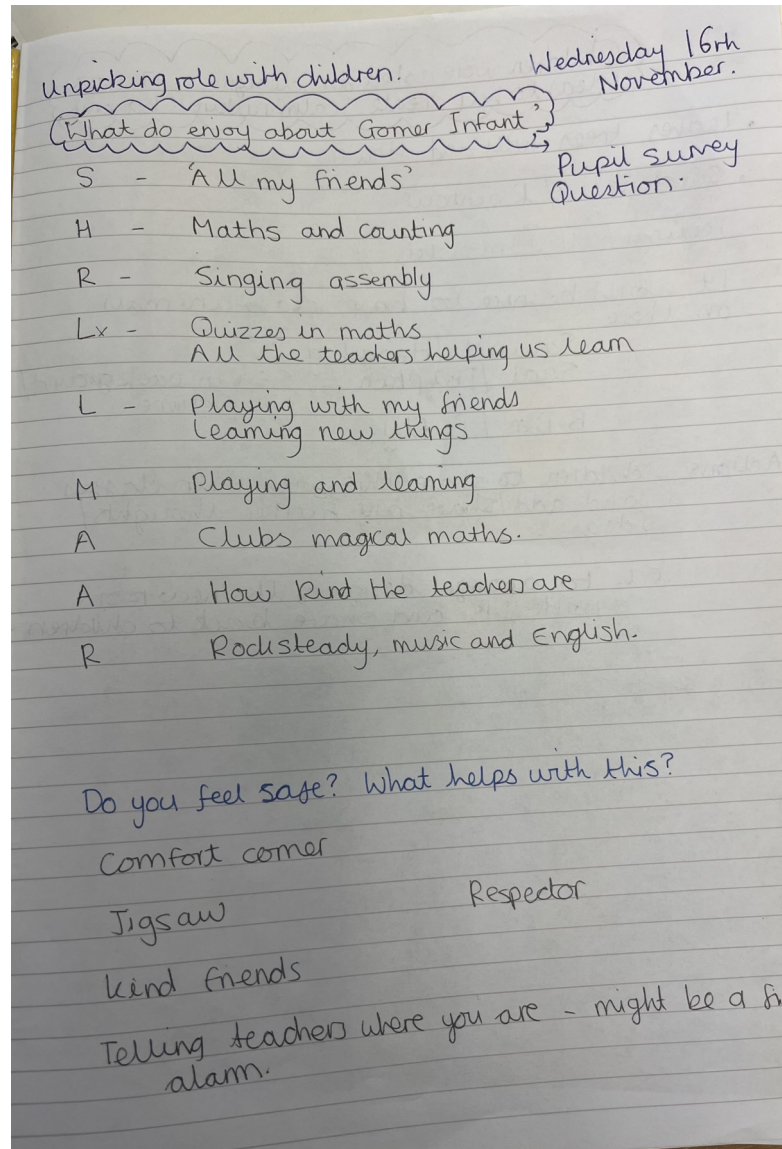 Unpicking role with children.
Wednesday 16th
November.
'What do enjoy about Gomer Infant'
Pupil survey
Question.
S - 'All my friends'
H - Maths and counting
R - Singing assembly
Lx - Quizzes in maths
All the teachers helping us learn
L - Playing with my friends
Learning new things
M Playing and learning
A Clubs magical maths.
A How kind the teachers are
R Rocksteady, music and English.
Do you feel safe? What helps with this?
Comfort corner
Jigsaw
Respector
Kind friends
Telling teachers where you are - might be a
alarm.